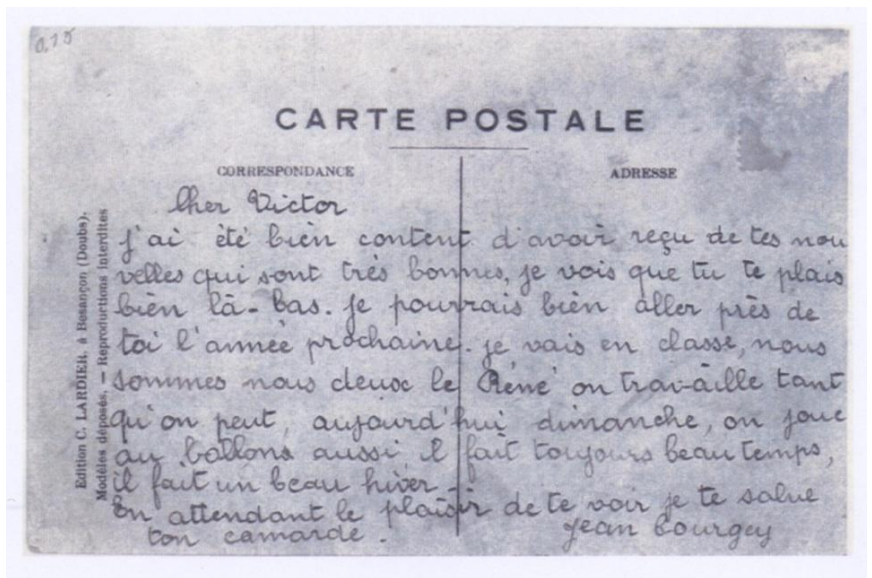 0,15
CARTE POSTALE
CORRESPONDANCE
ADRESSE
Edition C. LARDIER, à Besançon (Doubs).
Modèles déposés. — Reproductions interdites
Cher Victor
j'ai été bien content d'avoir reçu de tes nou
velles qui sont très bonnes, je vois que tu te plais
bien là-bas. je pourrais bien aller près de
toi l'année prochaine. je vais en classe, nous
sommes nous deux le Réné on travaille tant
qu'on peut, aujourd'hui dimanche, on joue
au ballons aussi il fait toujours beau temps,
il fait un beau hiver.
En attendant le plaisir de te voir je te salue
ton camarde. Jean Bourgey